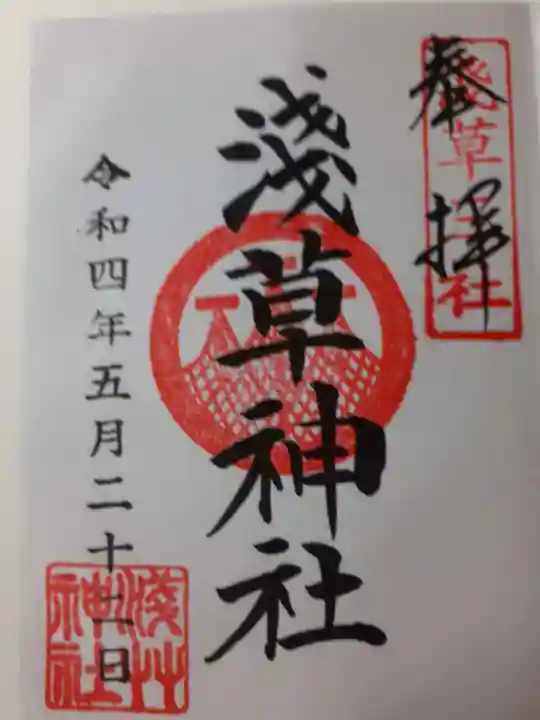 奉拝
淺草神社
淺草神社
令和四年五月二十二日
淺草神社